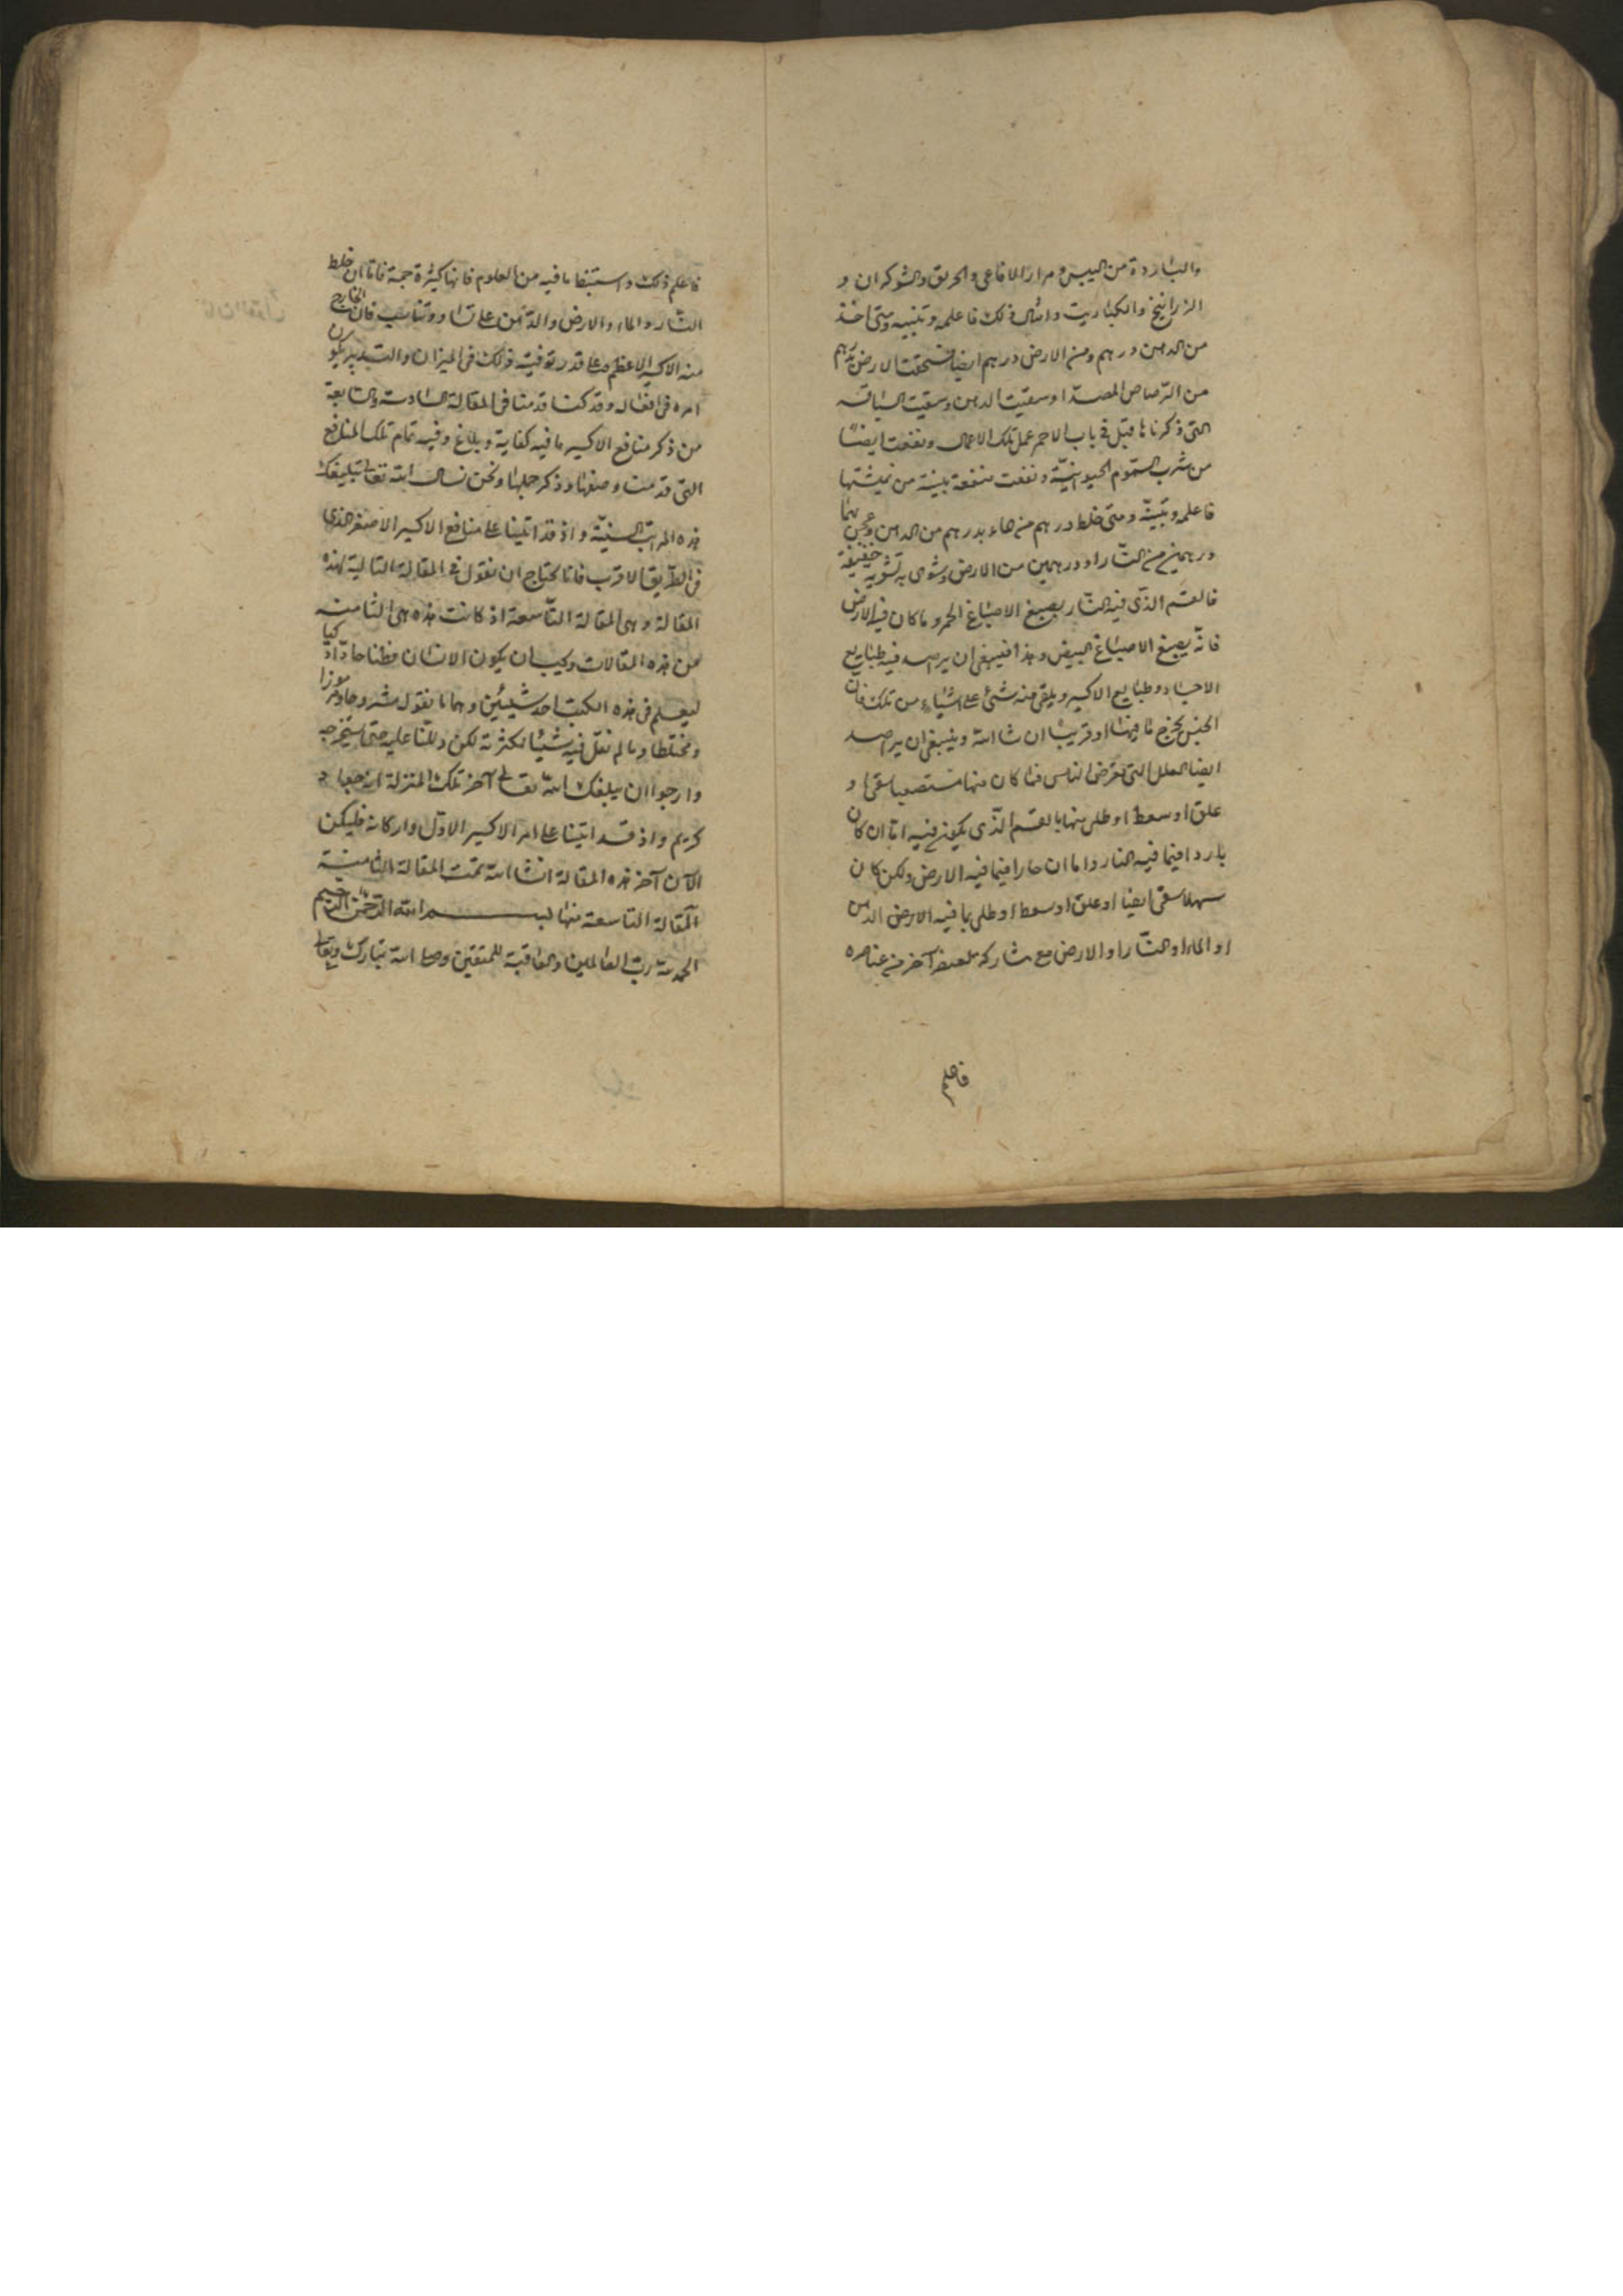 والباردة من البيس ومرار الافاعى والخربق والشوكران و
الزرانيخ والكباريت وامثال ذلك فاعلمه وتبينه ومتى اخذ
من الدهن درهم ومن الارض درهم ايضا فسحقت الارض بدرهم
من الرصاص المصدا وسقيت الدهن وسقيت الساقه
التى ذكرناها قبل فى باب الاحمر عمل تلك الاعمال ونفعت ايضا
من شرب السموم الحيوانية ونفعت منفعة بينة من نهشتها
فاعلمه وتبينه ومتى خلط درهم من ماء بدرهم من الدهن وعجن بهما
درهمين من النار او درهمين من الارض وشوى به تشوية خفيفة
فالقسم الذى فيه النار يصبغ الاصباغ الحمر وما كان فيه الارض
فانه يصبغ الاصباغ البيض وهذا فينبغى ان يرصد فيه طبايع
الاجساد وطبايع الاكسير ويلقى منه شئ على اشياء من تلك فان
الجنس يخرج ما فيها او قريبا ان شا الله وينبغى ان يرصد
ايضا العلل التى تعرض للناس فما كان منها مستصعبا سقى او
علق او سعط او طلى منها بالقسم الذى يكون فيه اما ان كان
باردا فيما فيه النار واما ان حارا فيما فيه الارض ولكن كان
سهلا سقى ايضا او علق او سعط او طلى بما فيه الارض الدهن
او الماء او النار او الارض مع مشاركة لبعض آخر من عناصره
فاعلم
فاعلم ذلك واستنبط ما فيه من العلوم فانها كثيرة جمة فاما ان خلط
النار والماء والارض والدهن على تساو وتناسب فان الخارج
منه الاكسير الاعظم وعلى قدر توفيته ذلك فى الميزان والتدبير يكون
امره فى افعاله وقد كنا قدمنا فى المقالة السادسة والسابعة
من ذكر منافع الاكسير ما فيه كفاية وبلاغ وفيه تمام تلك المنافع
التى قدمت وصفها وذكر جلها ونحن نسال الله تعالى تبليغك
هذه المراتب السنية واذ قد اتينا على منافع الاكسير الاصغر الذى
فى الطريق الاقرب فانا نحتاج ان نقول فى المقالة التالية لهذه
المقالة وهى المقالة التاسعة اذ كانت هذه هى الثامنة
من هذه المقالات وكيب ان يكون الانسان فطنا حادا ذكيا
ليعلم فى هذه الكتب احد شيئين وهما ما نقول مشروحا ومرموزا
ومختلطا وما لم نقل فيه شيئا لكثرته لكن دللنا عليه حتى يستخرجه
وارجو ان يبلغك الله تعالى آخر تلك المنزلة انه جواد
كريم واذ قد اتينا على امر الاكسير الاول واركانه فليكن
الآن آخر هذه المقالة انشا الله تمت المقالة الثامنة
المقالة التاسعة منها بسم الله الرحمن الرحيم
الحمد لله رب العالمين والعاقبة للمتقين وصلى الله تبارك وتعالى